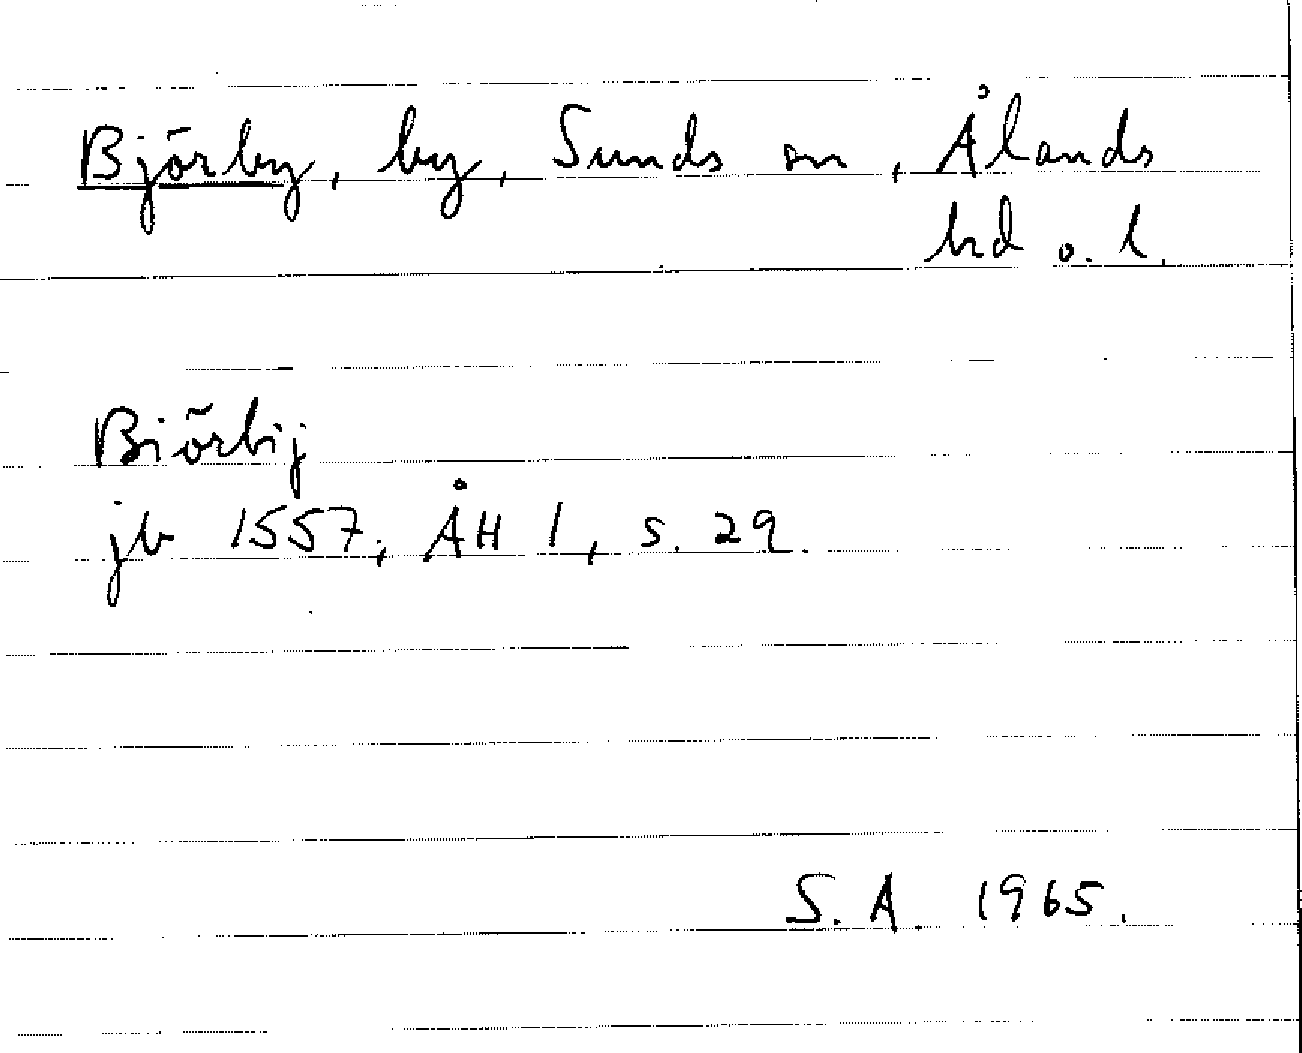 Björby, by, Sunds sn, Ålands
hd o. l.
Biörbij
jb 1557, ÅH 1, s. 29.
S. A. 1965.